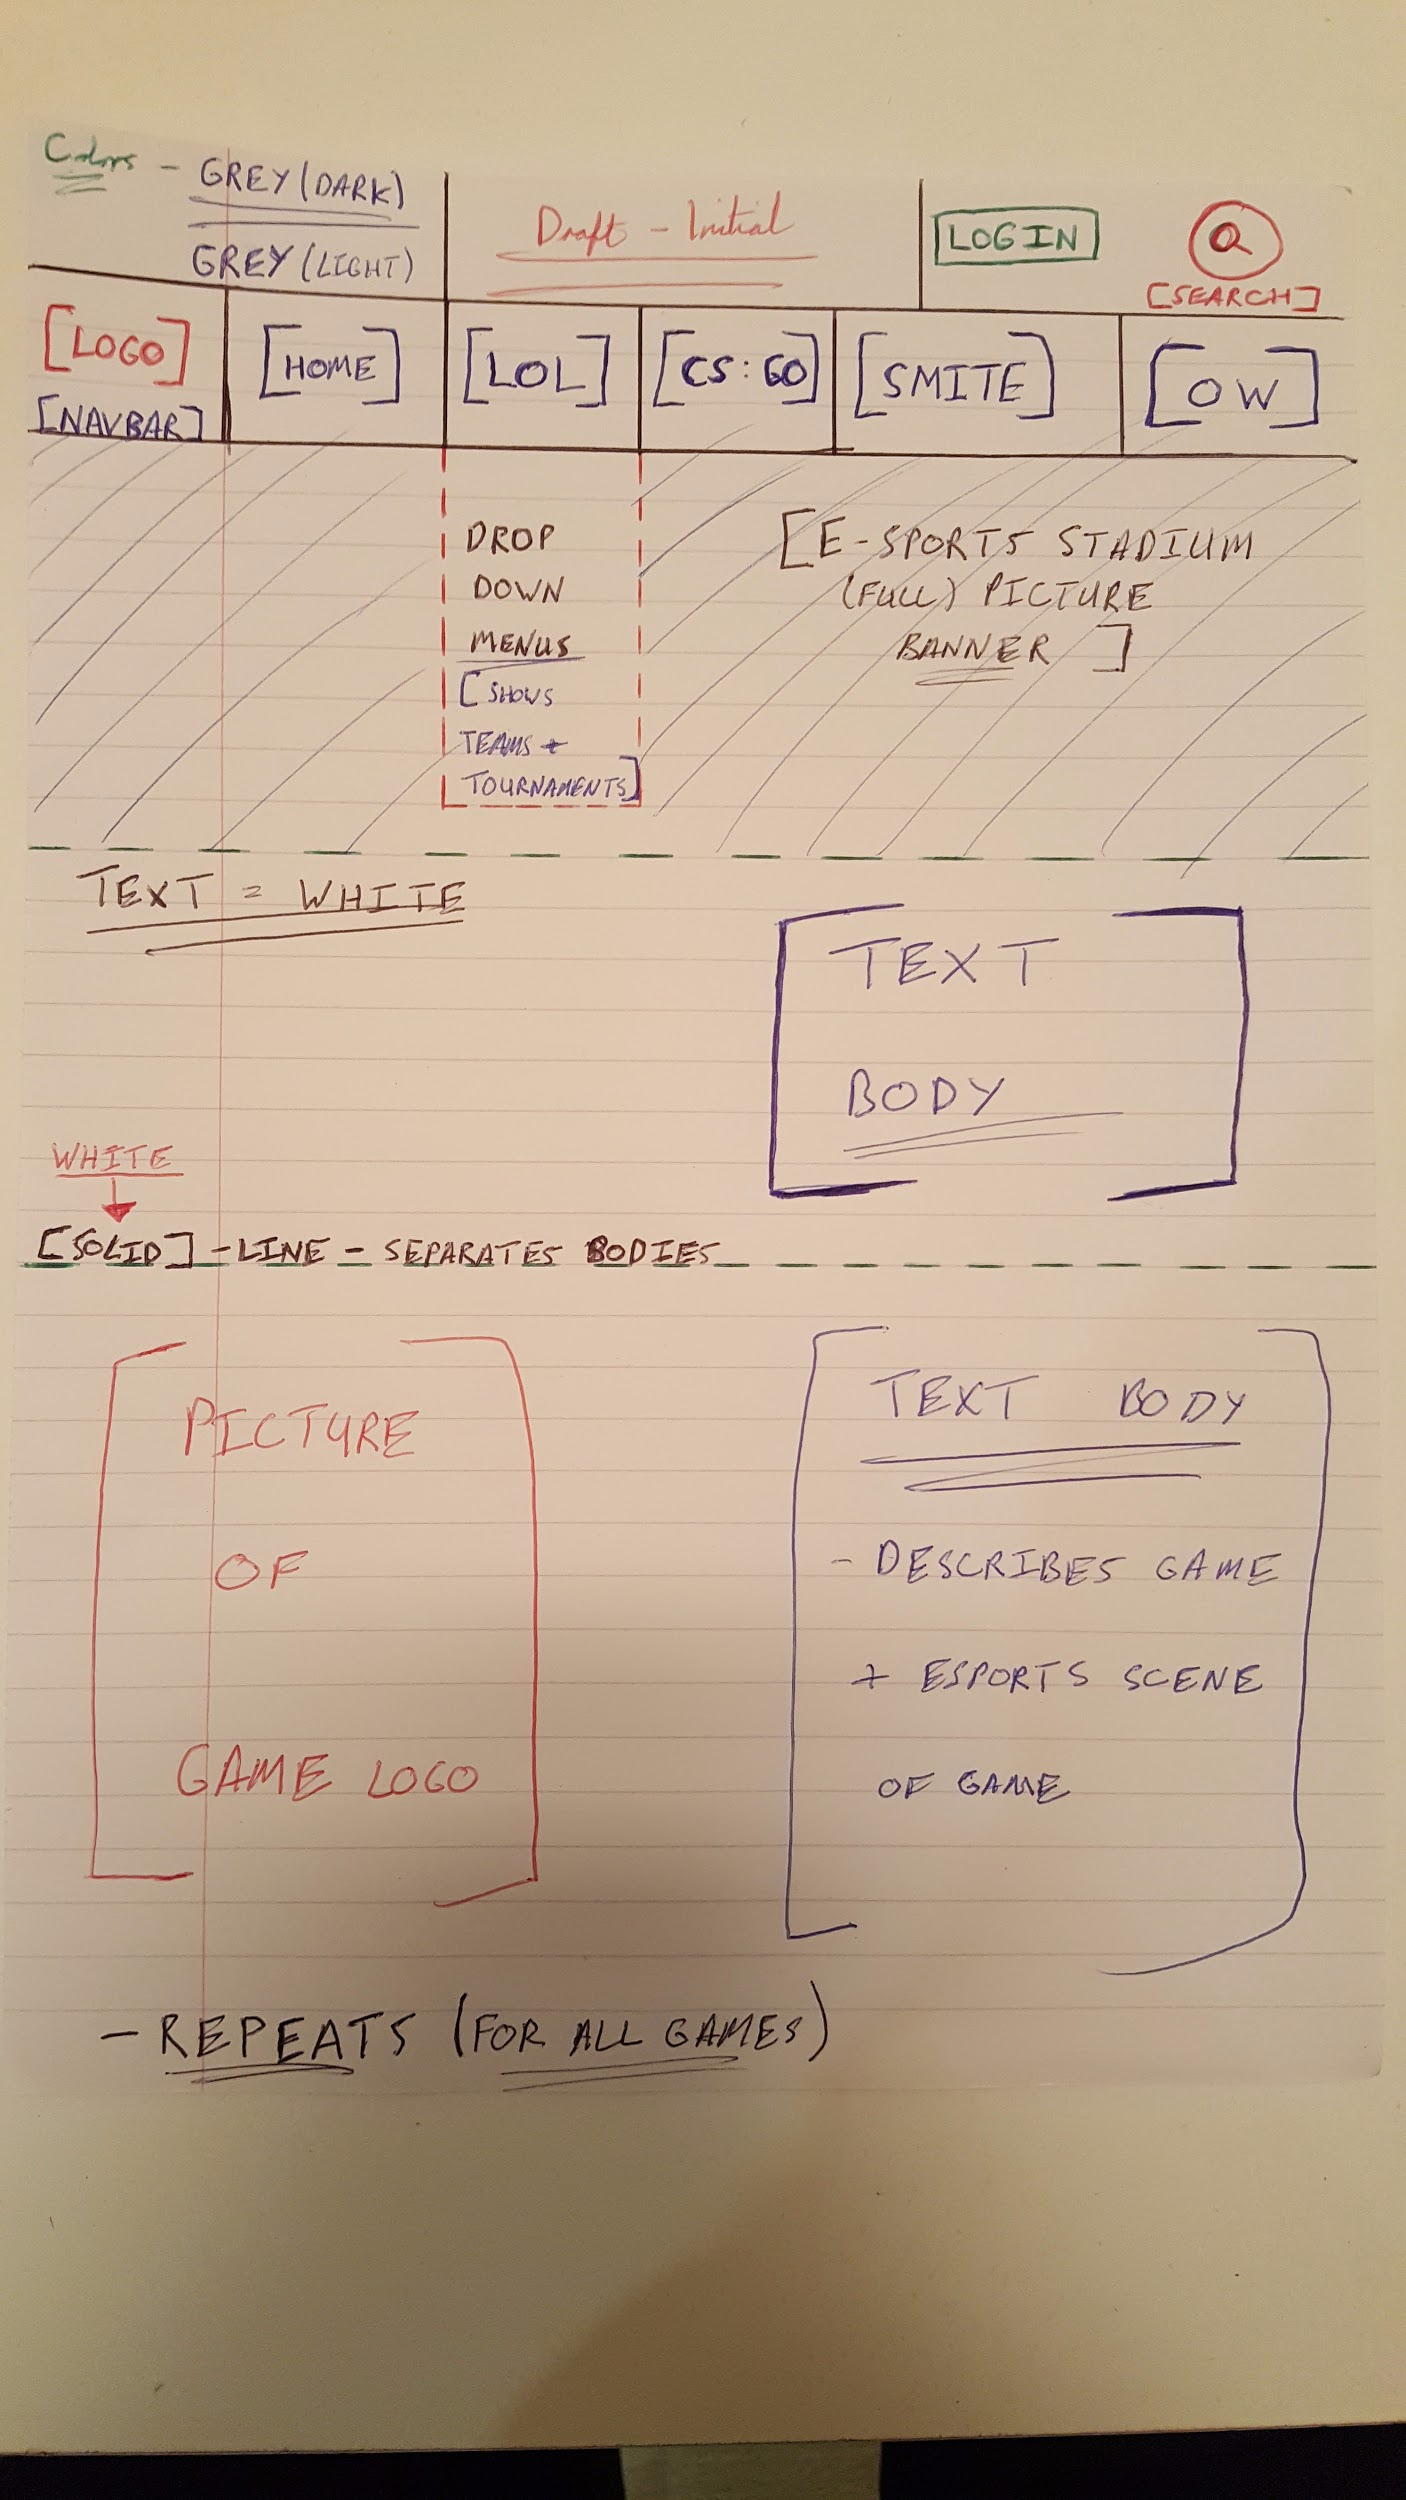 Colors - GREY (DARK)
GREY (LIGHT)
Draft - Initial
LOGIN
[SEARCH]
[LOGO]
[NAVBAR]
[HOME]
[LOL]
[CS:GO]
[SMITE]
[OW]
DROP
DOWN
MENUS
[SHOWS
TEAMS +
TOURNAMENTS]
[E-SPORTS STADIUM
(FULL) PICTURE
BANNER]
TEXT = WHITE
TEXT
BODY
WHITE
[SOLID] - LINE - SEPARATES BODIES
PICTURE
OF
GAME LOGO
TEXT BODY
- DESCRIBES GAME
+ ESPORTS SCENE
OF GAME
- REPEATS (FOR ALL GAMES)